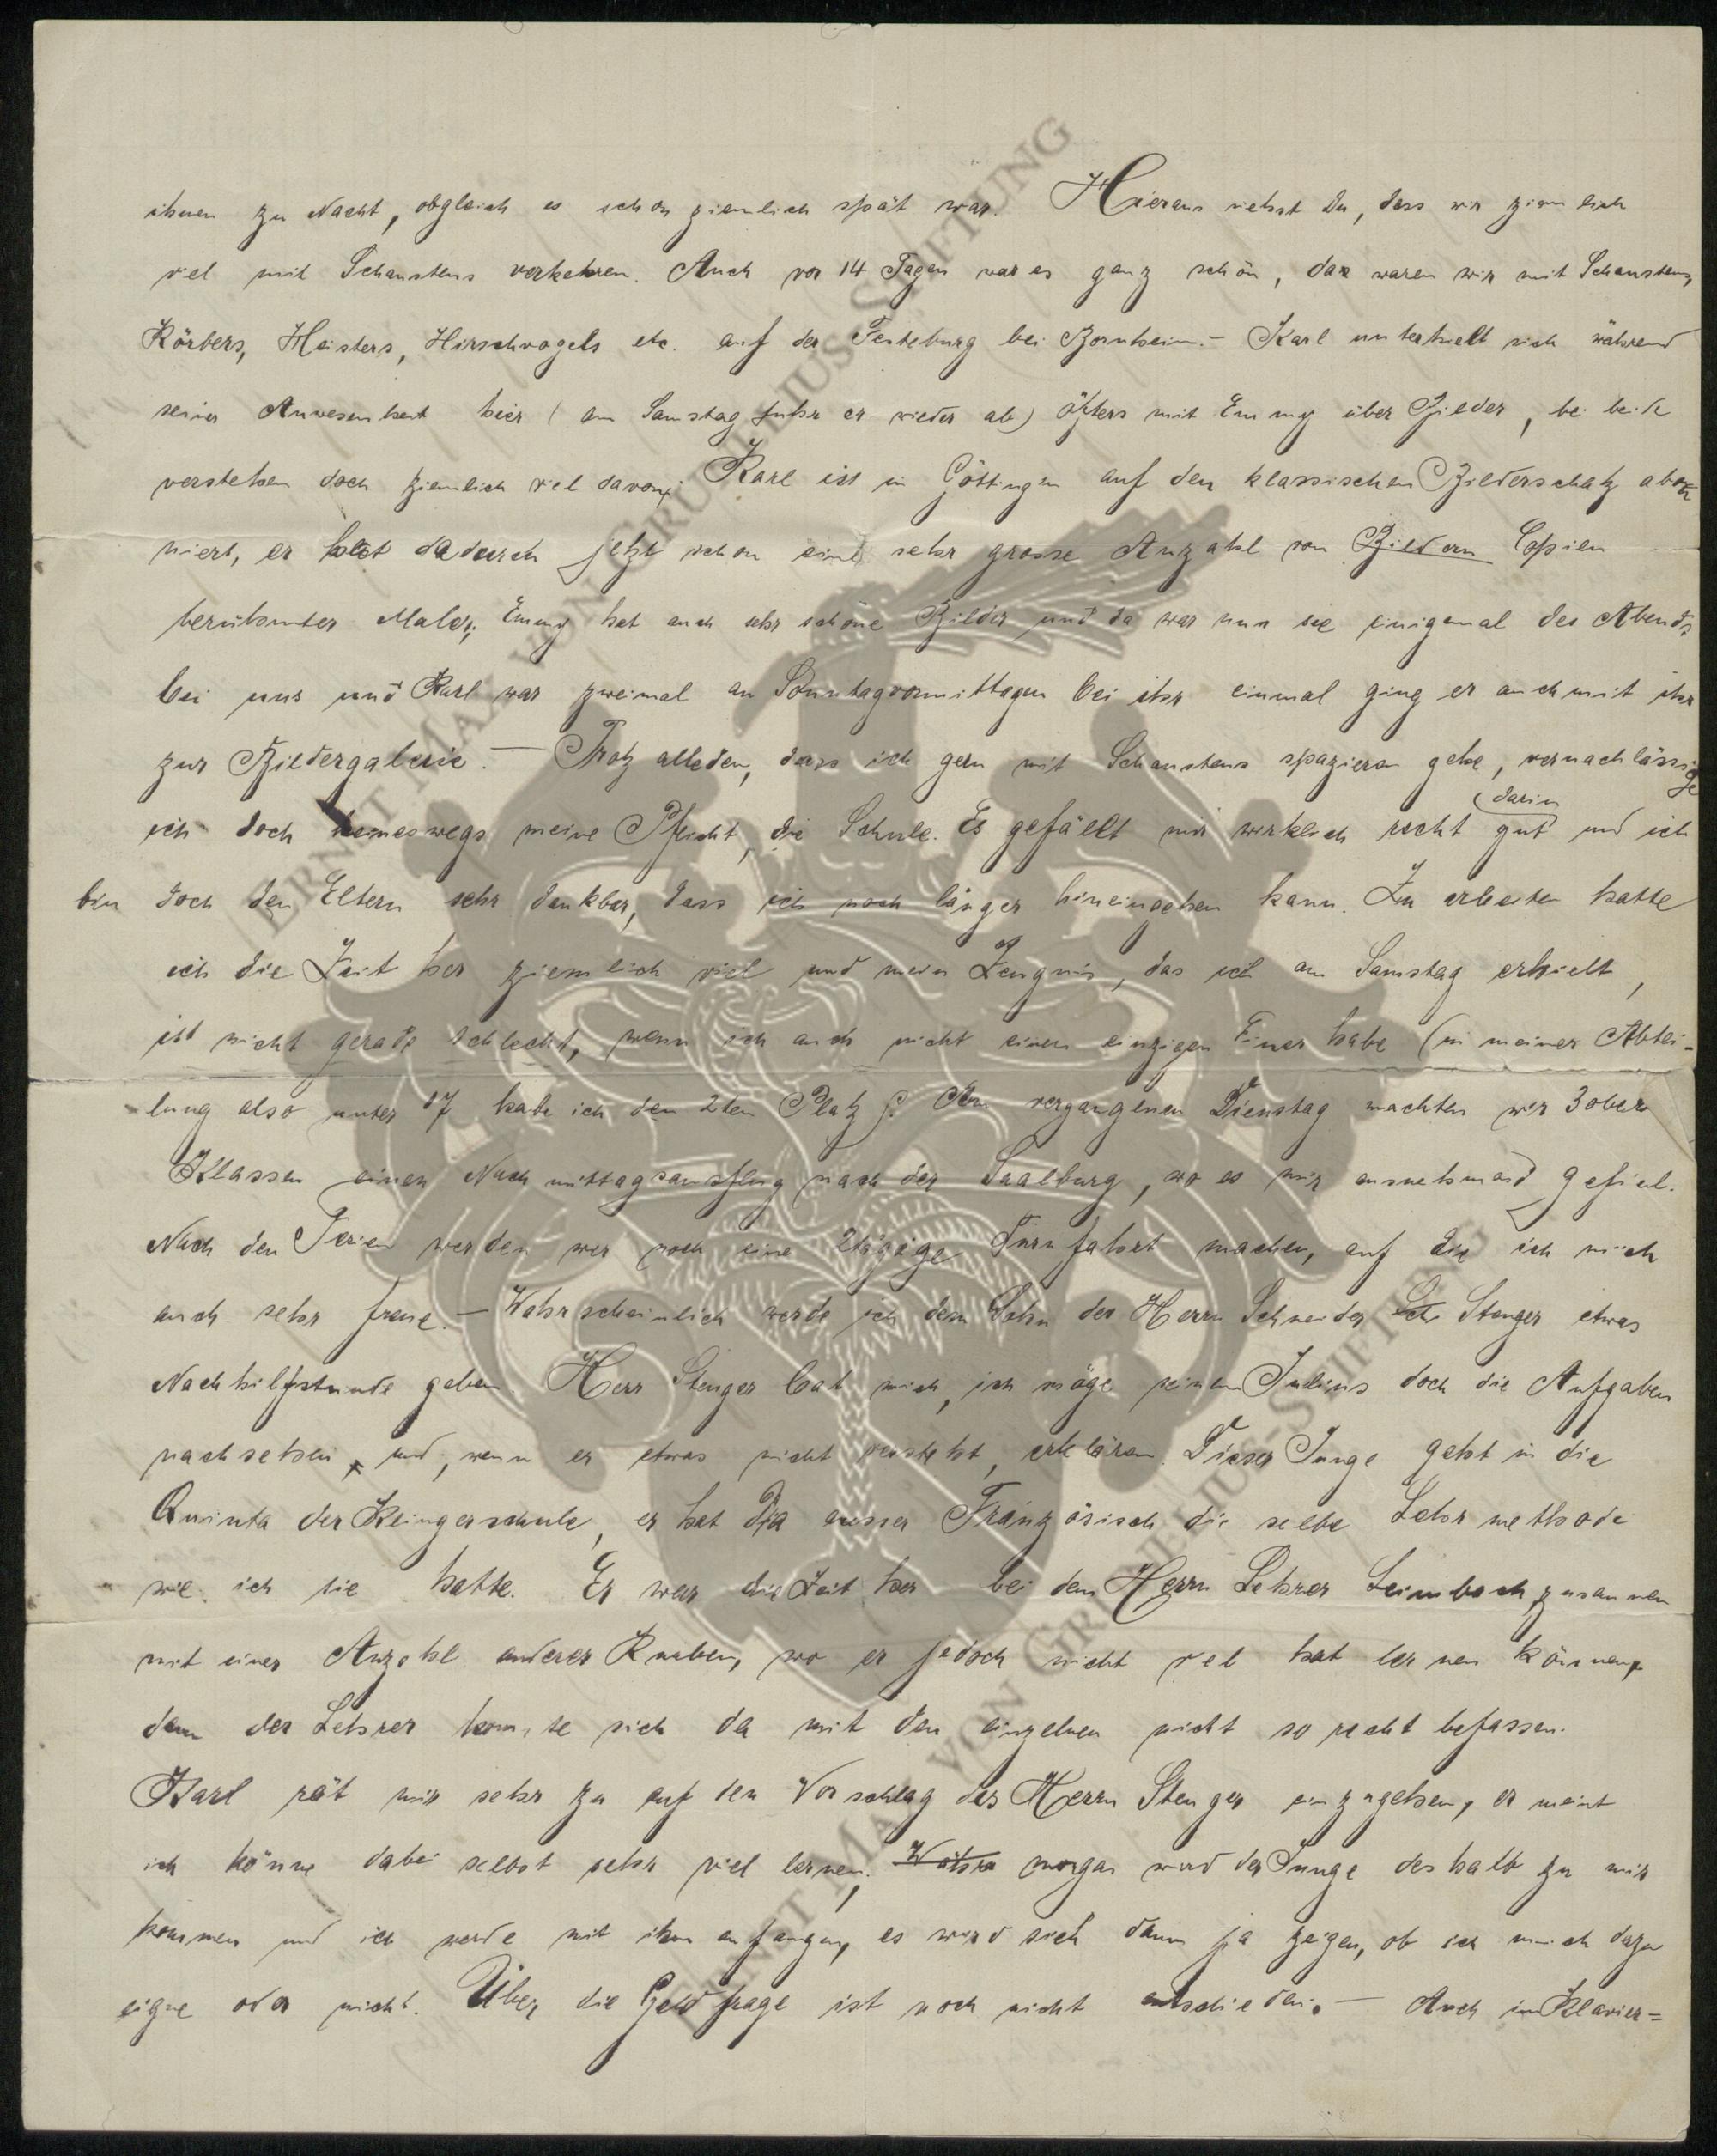 ihnen zu Nacht, obgleich es schon ziemlich spät war. Hieraus siehst Du, dass wir ziemlich
viel mit Schaustens verkehren. Auch vor 14 Tagen war es ganz schön, da waren wir mit Schaustens,
Körbers, Heisters, Hirschvogels etc. auf der Festeburg bei Bornheim. – Karl unterhielt sich während
seiner Anwesenheit hier (am Samstag fuhr er wieder ab) öfters mit Emmy über Bilder, bei beide
verstehen doch ziemlich viel davon; Karl ist in Göttingen auf den klassischen Bilderschatz abon
niert, er hat dadurch jetzt schon eine sehr grosse Anzahl von Bildern Copien
berühmter Maler; Emmy hat auch sehr schöne Bilder und da war nun sie einigemal des Abends
bei uns und Karl war zweimal an Sonntagvormittagen bei ihr einmal ging er auch mit ihr
zur Bildergalerie. – Trotz alledem, dass ich gern mit Schaustens spazieren gehe, vernachlässige
darin
ich doch keineswegs meine Pflicht, die Schule. Es gefällt mir wirklich recht gut und ich
bin doch den Eltern sehr dankbar, dass ich noch länger hineingehen kann. Zu arbeiten hatte
ich die Zeit her ziemlich viel und mein Zeugnis, das ich am Samstag erhielt,
ist nicht gerade schlecht, wenn ich auch nicht einen einzigen Einer habe (in meiner Abtei-
lung also unter 17 habe ich den 2ten Platz). Am vergangenen Dienstag machten wir 3 obern
Klassen einen Nachmittagsausflug nach der Saalburg, wo es mir ausnehmend gefiel.
Nach den Ferien werden wir noch eine 2tägige Turnfahrt machen, auf die ich mich
auch sehr freue. – Wahrscheinlich werde ich dem Sohn des Herrn Schneider Sch Stenger etwas
Nachhilfstunde geben. Herr Stenger bat mich, ich möge seinem Julius doch die Aufgaben
nachsehen, und, wenn er etwas nicht versteht, erklären. Dieser Junge geht in die
Quinta der Klingerschule, er hat da ausser Französisch die selbe Lehrmethode
wie ich sie hatte. Er war die Zeit her bei dem Herrn Lehrer Leimbach zusammen
mit einer Anzahl anderer Knaben, wo er jedoch nicht viel hat lernen können,
denn der Lehrer konnte sich da mit den einzelnen nicht so recht befassen.
Karl rät mir sehr zu auf den Vorschlag des Herrn Stenger einzugehen, er meint
ich könne dabei selbst sehr viel lernen; Wahre morgen wird der Junge deshalb zu mir
kommen und ich werde mit ihm anfangen, es wird sich dann ja zeigen, ob ich mich dazu
eigne oder nicht. Über die Geldfrage ist noch nicht entschieden. – Auch im Klavier=
ERNST MAX VON GRUNELIUS-STIFTUNG
ERNST MAX VON GRUNELIUS-STIFTUNG